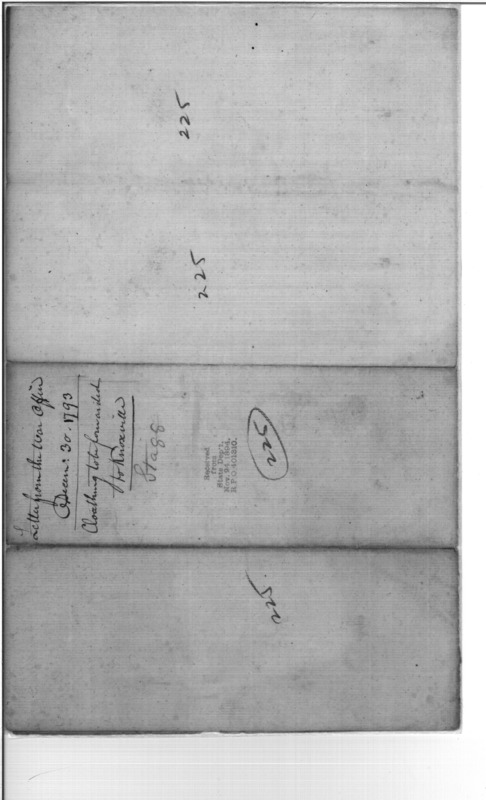 225
225
Letter from the War Office
Decem: 30. 1793
Cloathing to be forwarded
to Knoxville
Stagg
Received
from
State Dep't,
Nov. 24 1894.
R.P.O. 401810.
225
225.